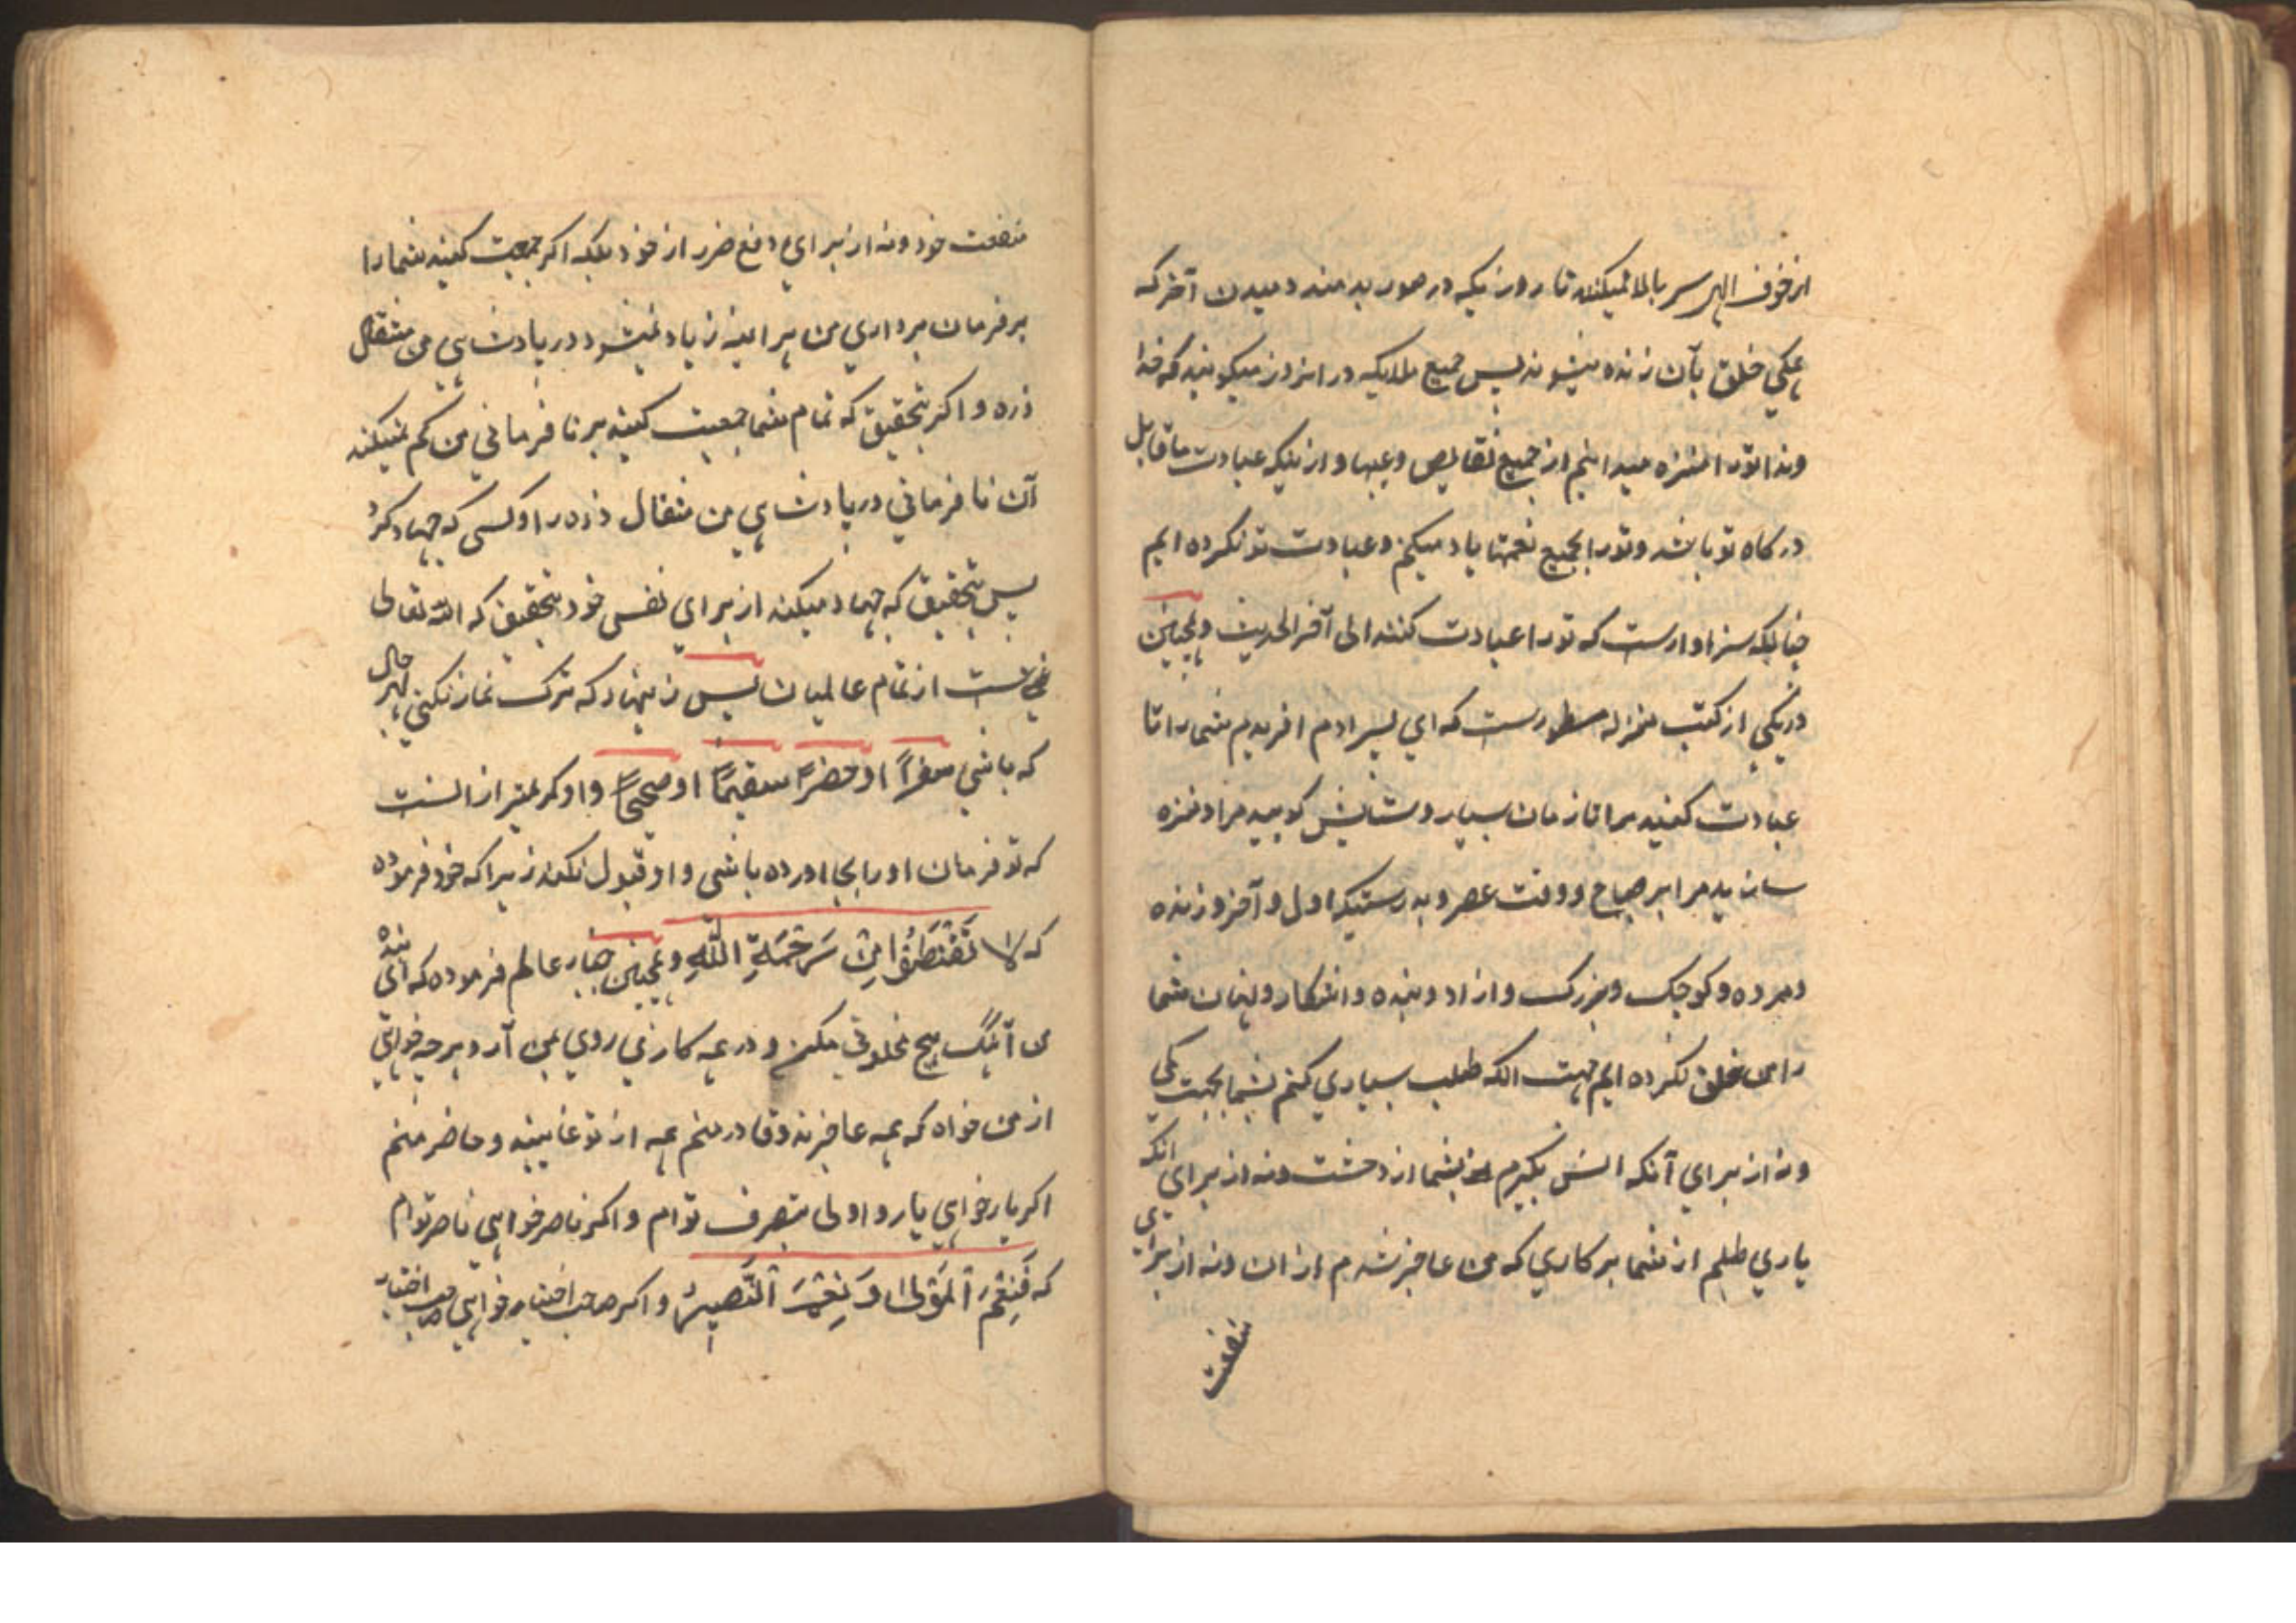 از خوف الهی سر بالا نمیکنند تا روزیکه در صور بدمند دمیدن آخر که
همکی خلق بآن زنده میشوند پس جمیع ملایکه در انروز میکویند که خدا
وندا تورا منزه میدانیم از جمیع نقایص و عیبها و ازینکه عبادت ما قابل
درکاه تو باشد و تورا بجمیع نعمتها یاد میکنم و عبادت تو نکرده ایم
چنانکه سزاوارست که تورا عبادت کنند الی آخر الحدیث و همچنین
در یکی از کتب منزله مسطورست که ای پسر ادم افریدم شما را تا
عبادت کنید مرا تا زمان بسیار و ستایش کویید مرا و منزه
سازید مرا بر صباح و وقت عصر و بدرستیکه اول و آخر و زنده
و مرده و کوچک و بزرک و ازاد و بنده و اشکار و پنهان شما
را من خلق نکرده ایم جهت انکه طلب بسیاری کنم بشما بجهت کمی
و نه از برای آنکه انس بگیرم بشما از دحشت و نه از برای انکه
یاری طلبم از شما بر کاری که من عاجز شدم از ان و نه از برای
منفعت
منفعت خود و نه از برای دفع ضرر از خود بلکه اکر جمعیت کنید شما را
بر فرمان برداری من هراینه زیاد نمیشود در پادشاهی من مثقال
ذره و اکر بتحقیق که تمام شما جمعیت کنید بر نا فرمانی من کم نمیکند
آن نا فرمانی در پادشاهی من مثقال ذره را و کسی که جهاد کرد
پس بتحقیق که جهاد میکند از برای نفس خود بتحقیق که الله تعالی
غنی ست از تمام عالمیان پس زینهار که ترک نماز نکنی بهر حال
که باشی سفراً او حضراً سقیماً او صحیحاً و او کریمتر از انست
که تو فرمان او را بجا اورده باشی و او قبول نکند زیرا که خود فرموده
که لا تَقْنَطُوا مِنْ رَحْمَةِ اللّهِ و همچنین جبار عالم فرموده که ای بنده
من آهنگ هیچ مخلوقی مکن و در همه کار روی بمن آر و هر چه خواهی
از من خواه که همه عاجزند و قادر منم همه از تو غایبند و حاضر منم
اکر یار خواهی یار و اولی بتصرف توام و اکر ناصر خواهی ناصر توام
که فَنِعْمَ الْمَوْلی وَ نِعْمَ النَّصِیرُ و اکر صاحب اختیار خواهی صاحب اختیار